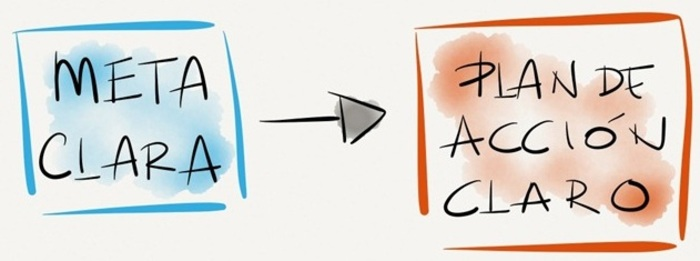 META
CLARA
PLAN DE
ACCIÓN
CLARO